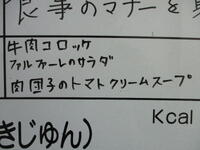 食事のマナーを
牛肉コロッケ
ファルファーレのサラダ
肉団子のトマトクリームスープ
Kcal
きじゅん)